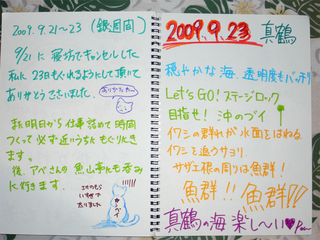 2009.9.21〜23 (銀週間)
9/21に寝坊でキャンセルした
私に 23日もぐれるようにして頂いて
ありがとうございました。
また明日から仕事詰めて時間
つくって必ず近いうちもぐりに
きます。
後、アベさんの魚山亭にも呑み
に行きます。
2009.9.23 真鶴
穏やかな海、透明度もバッチリ
Let's GO! ステージロック
目指せ! 沖のブイ
イワシの群れが水面をはねる
イワシを追うサヨリ。
サザエ根の周りは魚群!
魚群!! 魚群!!!
真鶴の海 楽し〜い♥